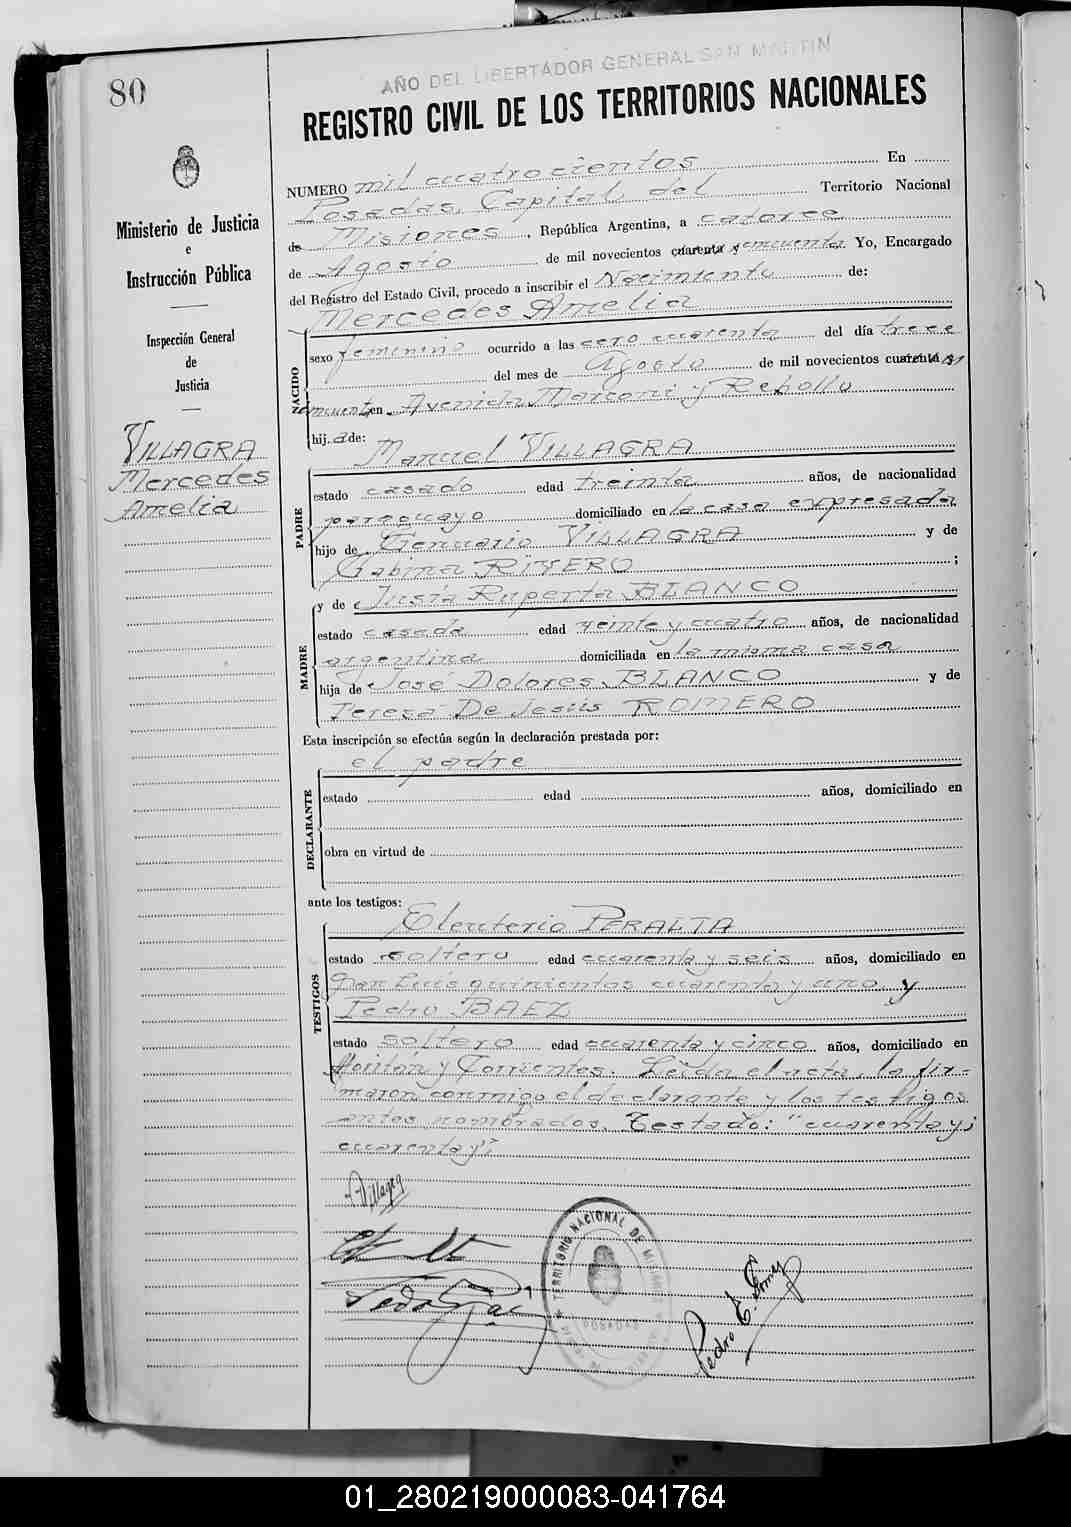 80
AÑO DEL LIBERTADOR GENERAL SAN MARTIN
REGISTRO CIVIL DE LOS TERRITORIOS NACIONALES
Ministerio de Justicia
e
Instrucción Pública
Inspección General
de
Justicia
VILLAGRA
Mercedes
Amelia
NUMERO mil cuatrocientos En
Posadas, Capital del Territorio Nacional
de Misiones, República Argentina, a catorce
de Agosto de mil novecientos cuarenta y cincuenta Yo, Encargado
del Registro del Estado Civil, procedo a inscribir el Nacimiento de:
Mercedes Amelia
NACIDO
sexo femenino ocurrido a las cero cuarenta del día trece
del mes de Agosto de mil novecientos cuarenta y
cincuenta en Avenida Marconi y Rebollo
hij a de:
Manuel VILLAGRA
PADRE
estado casado edad treinta años, de nacionalidad
paraguayo domiciliado en la casa expresada
hijo de Genuario VILLAGRA y de
Gabina RIVERO ;
y de Lucía Ruperta BLANCO
MADRE
estado casada edad veinte y cuatro años, de nacionalidad
argentina domiciliada en la misma casa
hija de José Dolores BLANCO y de
Teresa De Jesús ROMERO
Esta inscripción se efectúa según la declaración prestada por:
el padre
DECLARANTE
estado edad años, domiciliado en
obra en virtud de
ante los testigos:
Eleuterio PERALTA
TESTIGOS
estado soltero edad cuarenta y seis años, domiciliado en
San Luis quinientos cuarenta y uno y
Pedro BAEZ
estado soltero edad cuarenta y cinco años, domiciliado en
y Corrientes. Leída el acta, la fir-
maron conmigo el declarante y los testigos
antes nombrados. Testado: "cuarenta y;
cuarenta y"
Villagra
TERRITORIO NACIONAL DE MISIONES
POSADAS
Pedro E. Gomez
01_280219000083-041764